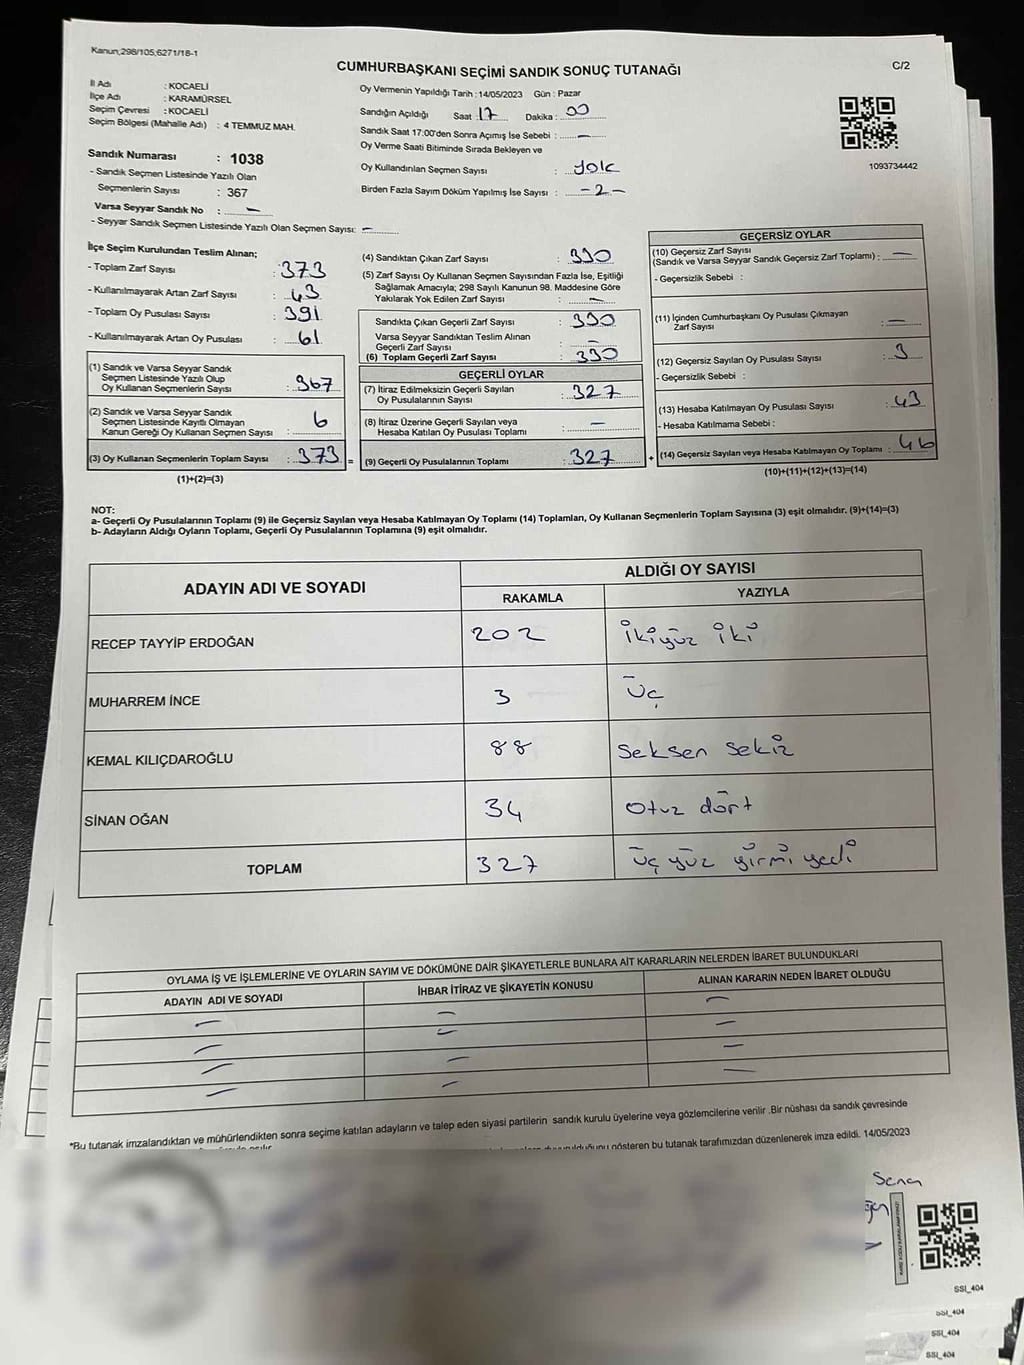 Kanun;298/105;6271/18-1
CUMHURBAŞKANI SEÇİMİ SANDIK SONUÇ TUTANAĞI
C/2
İl Adı : KOCAELİ
İlçe Adı : KARAMÜRSEL
Seçim Çevresi : KOCAELİ
Seçim Bölgesi (Mahalle Adı) : 4 TEMMUZ MAH.
Sandık Numarası : 1038
- Sandık Seçmen Listesinde Yazılı Olan
Seçmenlerin Sayısı : 367
Varsa Seyyar Sandık No : –
- Seyyar Sandık Seçmen Listesinde Yazılı Olan Seçmen Sayısı: –
Oy Vermenin Yapıldığı Tarih : 14/05/2023 Gün : Pazar
Sandığın Açıldığı Saat : 17 Dakika : 00
Sandık Saat 17:00'den Sonra Açımış İse Sebebi : –
Oy Verme Saati Bitiminde Sırada Bekleyen ve
Oy Kullandırılan Seçmen Sayısı : yok
Birden Fazla Sayım Döküm Yapılmış İse Sayısı : -2-
1093734442
İlçe Seçim Kurulundan Teslim Alınan;
- Toplam Zarf Sayısı : 373
- Kullanılmayarak Artan Zarf Sayısı : 43
- Toplam Oy Pusulası Sayısı : 391
- Kullanılmayarak Artan Oy Pusulası : 61
(1) Sandık ve Varsa Seyyar Sandık
Seçmen Listesinde Yazılı Olup
Oy Kullanan Seçmenlerin Sayısı : 367
(2) Sandık ve Varsa Seyyar Sandık
Seçmen Listesinde Kayıtlı Olmayan
Kanun Gereği Oy Kullanan Seçmen Sayısı : 6
(3) Oy Kullanan Seçmenlerin Toplam Sayısı : 373 =
(1)+(2)=(3)
(4) Sandıktan Çıkan Zarf Sayısı : 330
(5) Zarf Sayısı Oy Kullanan Seçmen Sayısından Fazla İse, Eşitliği
Sağlamak Amacıyla; 298 Sayılı Kanunun 98. Maddesine Göre
Yakılarak Yok Edilen Zarf Sayısı : –
Sandıkta Çıkan Geçerli Zarf Sayısı : 330
Varsa Seyyar Sandıktan Teslim Alınan
Geçerli Zarf Sayısı : –
(6) Toplam Geçerli Zarf Sayısı : 330
GEÇERLİ OYLAR
(7) İtiraz Edilmeksizin Geçerli Sayılan
Oy Pusulalarının Sayısı : 327
(8) İtiraz Üzerine Geçerli Sayılan veya
Hesaba Katılan Oy Pusulası Toplamı : –
(9) Geçerli Oy Pusulalarının Toplamı : 327 +
GEÇERSİZ OYLAR
(10) Geçersiz Zarf Sayısı
(Sandık ve Varsa Seyyar Sandık Geçersiz Zarf Toplamı) : –
- Geçersizlik Sebebi :
(11) İçinden Cumhurbaşkanı Oy Pusulası Çıkmayan
Zarf Sayısı : –
(12) Geçersiz Sayılan Oy Pusulası Sayısı : 3
- Geçersizlik Sebebi :
(13) Hesaba Katılmayan Oy Pusulası Sayısı : 43
- Hesaba Katılmama Sebebi :
(14) Geçersiz Sayılan veya Hesaba Katılmayan Oy Toplamı : 46
(10)+(11)+(12)+(13)=(14)
NOT:
a- Geçerli Oy Pusulalarının Toplamı (9) ile Geçersiz Sayılan veya Hesaba Katılmayan Oy Toplamı (14) Toplamları, Oy Kullanan Seçmenlerin Toplam Sayısına (3) eşit olmalıdır. (9)+(14)=(3)
b- Adayların Aldığı Oyların Toplamı, Geçerli Oy Pusulalarının Toplamına (9) eşit olmalıdır.
ADAYIN ADI VE SOYADI
ALDIĞI OY SAYISI
RAKAMLA YAZIYLA
RECEP TAYYİP ERDOĞAN 202 ikiyüz iki
MUHARREM İNCE 3 üç
KEMAL KILIÇDAROĞLU 88 Seksen sekiz
SİNAN OĞAN 34 otuz dört
TOPLAM 327 üç yüz yirmi yedi
OYLAMA İŞ VE İŞLEMLERİNE VE OYLARIN SAYIM VE DÖKÜMÜNE DAİR ŞİKAYETLERLE BUNLARA AİT KARARLARIN NELERDEN İBARET BULUNDUKLARI
ADAYIN ADI VE SOYADI İHBAR İTİRAZ VE ŞİKAYETİN KONUSU ALINAN KARARIN NEDEN İBARET OLDUĞU
– – –
– – –
– – –
– – –
*Bu tutanak imzalandıktan ve mühürlendikten sonra seçime katılan adayların ve talep eden siyasi partilerin sandık kurulu üyelerine veya gözlemcilerine verilir .Bir nüshası da sandık çevresinde
gösteren bu tutanak tarafımızdan düzenlenerek imza edildi. 14/05/2023
Sena
SSI_404
SSI_404
SSI_404
SSI_404